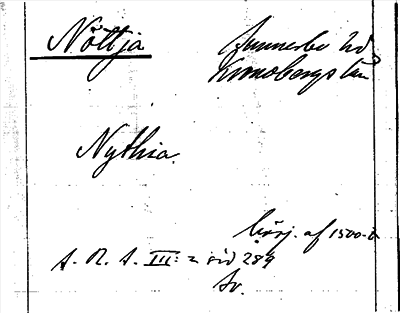 Nöttja
Sunnerbo hd
Kronobergs län
Nythia.
börj. af 1500-t.
S. R. A. III: 2 sid 289
Sv.